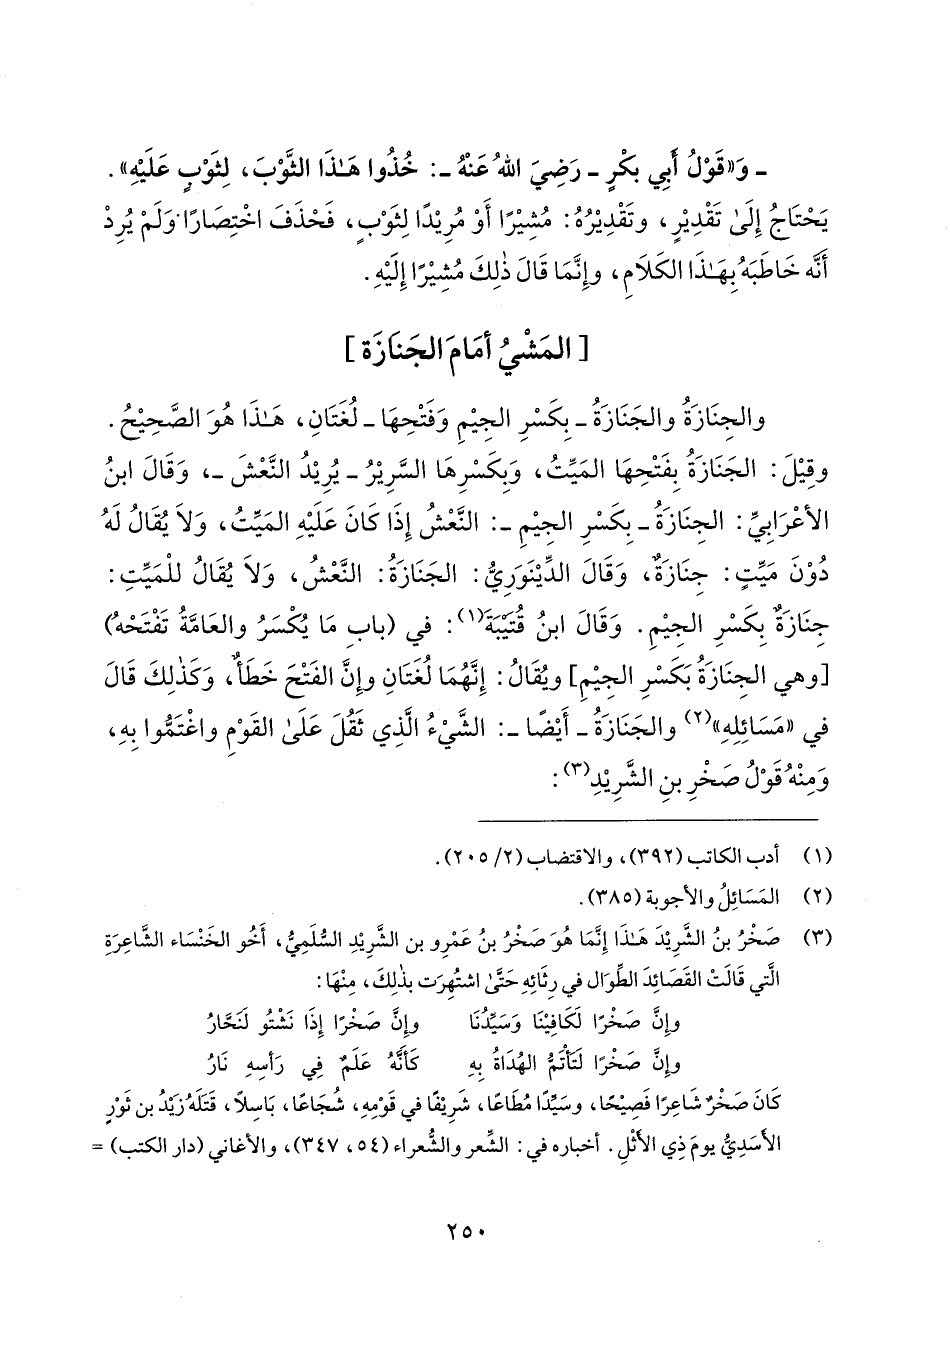 ـ وَ«قَوْلُ أَبِي بَكْرٍ ـ رَضِيَ اللهُ عَنْهُ ـ: خُذُوا هَـٰذَا الثَّوْبَ، لِثَوْبٍ عَلَيْهِ».
يَحْتَاجُ إِلَىٰ تَقْدِيْرٍ، وتَقْدِيْرُهُ: مُشِيْرًا أَوْ مُرِيْدًا لِثَوْبٍ، فَحُذَفَ اخْتِصَارًا وَلَمْ يُرِدْ
أَنَّه خَاطَبَهُ بِهَـٰذَا الكَلَامِ، وإِنَّمَا قَالَ ذٰلِكَ مُشِيْرًا إِلَيْهِ.
[المَشْيُ أمَامَ الجَنَازَة]
والجِنَازَةُ والجَنَازَةُ ـ بِكَسْرِ الجِيْمِ وَفَتْحِهَا ـ لُغَتَانِ، هَـٰذَا هُوَ الصَّحِيْحُ.
وقِيْلَ: الجَنَازَةُ بِفَتْحِهَا المَيِّتُ، وَبِكَسْرِهَا السَّرِيْرُ ـ يُرِيْدُ النَّعْشَ ـ، وَقَالَ ابنُ
الأعْرَابِيِّ: الجنَازَةُ ـ بِكَسْرِ الجِيْمِ ـ: النَّعْشُ إِذَا كَانَ عَلَيْهِ المَيِّتُ، وَلاَ يُقَالُ لَهُ
دُوْنَ مَيِّتٍ: جِنَازَةٌ، وَقَالَ الدِّيْنَوَرِيُّ: الجَنَازَةُ: النَّعْشُ، وَلاَ يُقَالُ للْمَيِّتِ:
جِنَازَةٌ بِكَسْرِ الجِيْمِ. وَقَالَ ابنُ قُتَيْبَةَ(١): في (بابِ مَا يُكْسَرُ والعَامَّةُ تَفْتَحُهُ)
[وهي الجِنَازَةُ بَكَسْرِ الجِيْمِ] ويُقَالُ: إِنَّهُمَا لُغَتَانِ وإِنَّ الفَتْحَ خَطَأٌ، وَكَذٰلِكَ قَالَ
في «مَسَائِلِهِ»(٢) والجَنَازَةُ ـ أَيْضًا ـ: الشَّيْءُ الَّذِي ثَقُلَ عَلَىٰ القَوْمِ واغْتَمُّوا بِهِ،
وَمِنْهُ قَوْلُ صَخْرِ بنِ الشَّرِيْدِ(٣):
(١) أدب الكاتب (٣٩٢)، والاقتضاب (٢/ ٢٠٥).
(٢) المَسَائِلُ والأجوبة (٣٨٥).
(٣) صَخْرُ بنُ الشَّرِيْدَ هَـٰذَا إِنَّمَا هُوَ صَخْرُ بنُ عَمْرِو بنِ الشَّرِيْدِ السُّلَمِيُّ، أَخُو الخَنْسَاء الشَّاعِرَةِ
الَّتي قَالَتْ القَصَائِدَ الطِّوَال في رِثَائِهِ حَتَّىٰ اشتُهِرَت بِذٰلِكَ، مِنْهَا:
وإِنَّ صَخْرًا لَكَافِيْنَا وَسَيِّدُنَا وإِنَّ صَخْرًا إِذَا نَشْتُو لَنَحَّارُ
وإِنَّ صَخْرًا لَتَأْتَمُّ الهُدَاةُ بِهِ كَأَنَّهُ عَلَمٌ فِي رَأْسِهِ نَارُ
كَانَ صَخْرٌ شَاعِرًا فَصِيْحًا، وسَيِّدًا مُطَاعًا، شَرِيْفًا في قَوْمِهِ، شُجَاعًا، بَاسِلاً، قَتَلَهُ زَيْدُ بن ثَوْرٍ
الأسَدِيُّ يومَ ذِي الأَثْلِ. أخباره في: الشِّعر والشُّعراء (٥٤، ٣٤٧)، والأغاني (دار الكتب) =
٢٥٠